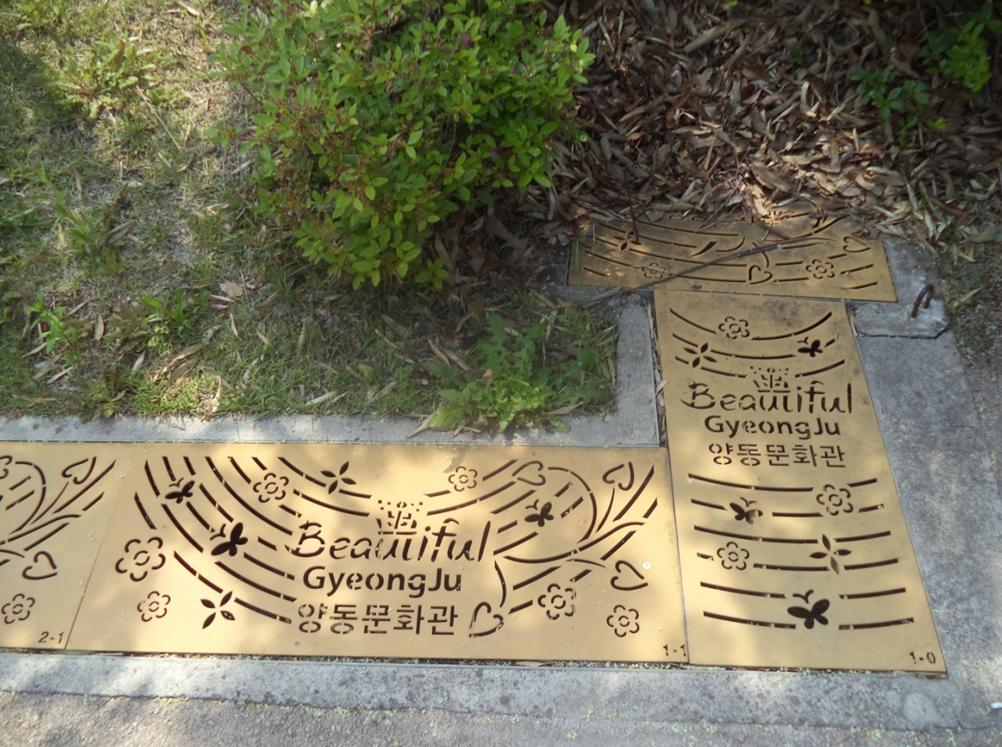 Beautiful
GyeongJu
양동문화관
2-1
1-1
Beautiful
GyeongJu
양동문화관
1-0